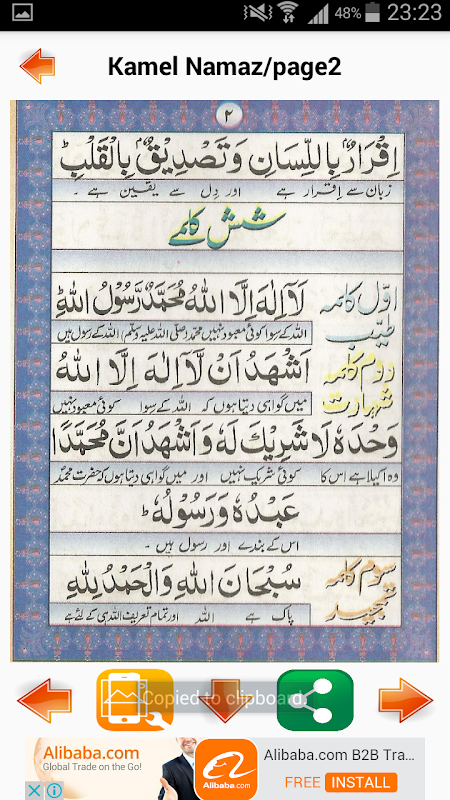 48% 23:23
Kamel Namaz/page2
٢
اِقْرَارٌۢ بِاللِّسَانِ وَتَصْدِيْقٌۢ بِالْقَلْبِ ؕ
زبان سے اِقرار ہے اور دِل سے یقین ہے ۔
شش کلمے
اوّل کلمہ طیّب
لَآ اِلٰهَ اِلَّا اللهُ مُحَمَّدٌ رَّسُوْلُ اللهِ ؕ
اللہ کے سوا کوئی معبود نہیں محمد صلی اللہ علیہ وسلم اللہ کے رسول ہیں
دوم کلمہ شہادت
اَشْهَدُ اَنْ لَّآ اِلٰهَ اِلَّا اللهُ
میں گواہی دیتا ہوں کہ اللہ کے سوا کوئی معبود نہیں
وَحْدَهٗ لَا شَرِيْكَ لَهٗ وَاَشْهَدُ اَنَّ مُحَمَّدًا
وہ اکیلا ہے اس کا کوئی شریک نہیں اور میں گواہی دیتا ہوں کہ حضرت محمدؐ
عَبْدُهٗ وَرَسُوْلُهٗ ؕ
اس کے بندے اور رسول ہیں ۔
سوم کلمہ تمجید
سُبْحَانَ اللهِ وَالْحَمْدُ لِلّٰهِ
پاک ہے اللہ اور تمام تعریف اللہ ہی کے لئے ہے
Copied to clipboard.
Alibaba.com
Global Trade on the Go!
Alibaba.com
Alibaba.com B2B Tra...
FREE INSTALL